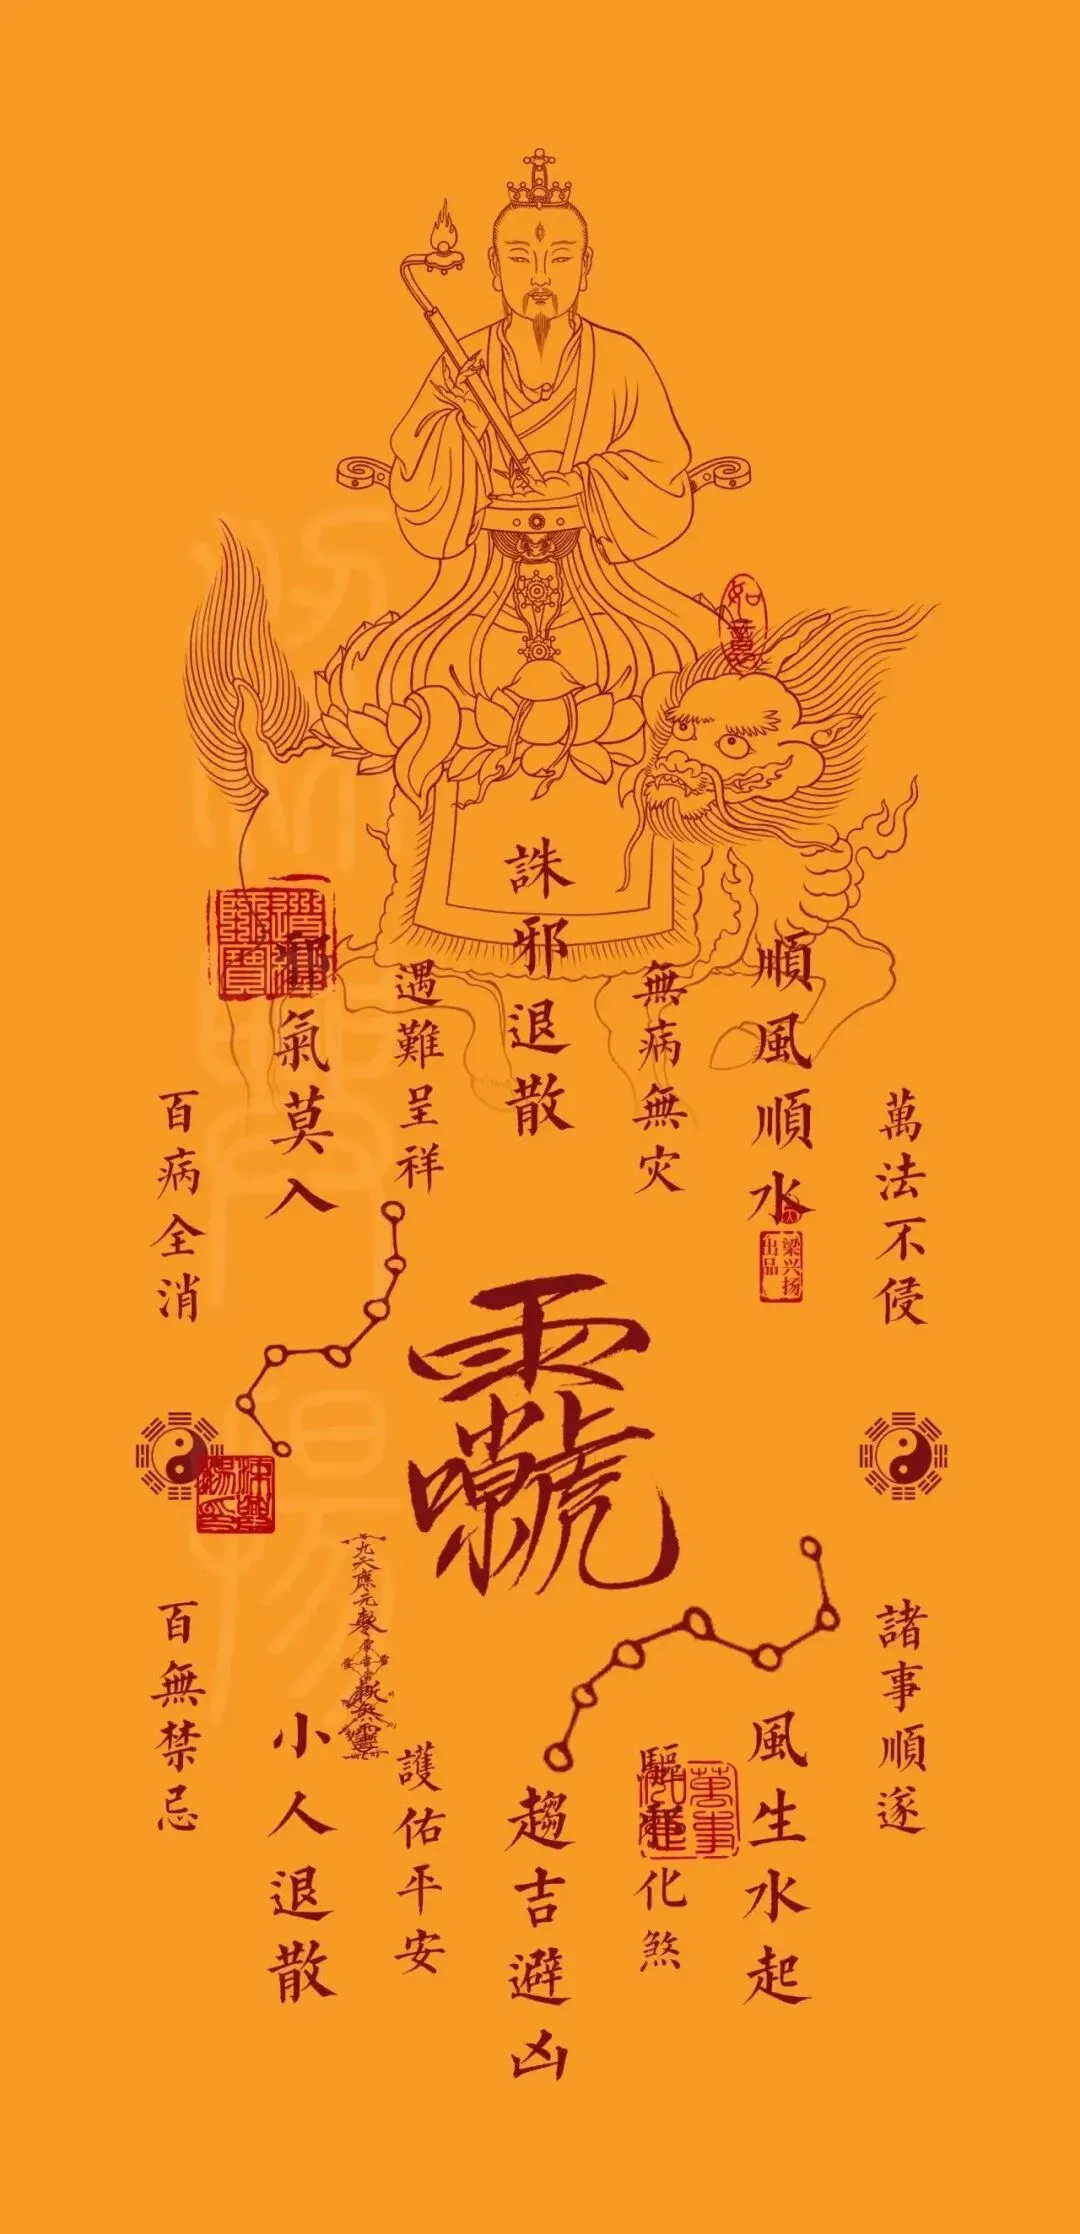 萬法不侵
順風順水
無病無灾
誅邪退散
遇難呈祥
邪氣莫入
百病全消
如意
梁兴扬
出品
道經師寶
諸事順遂
風生水起
驅化煞
趨吉避凶
護佑平安
小人退散
百無禁忌
萬事如意